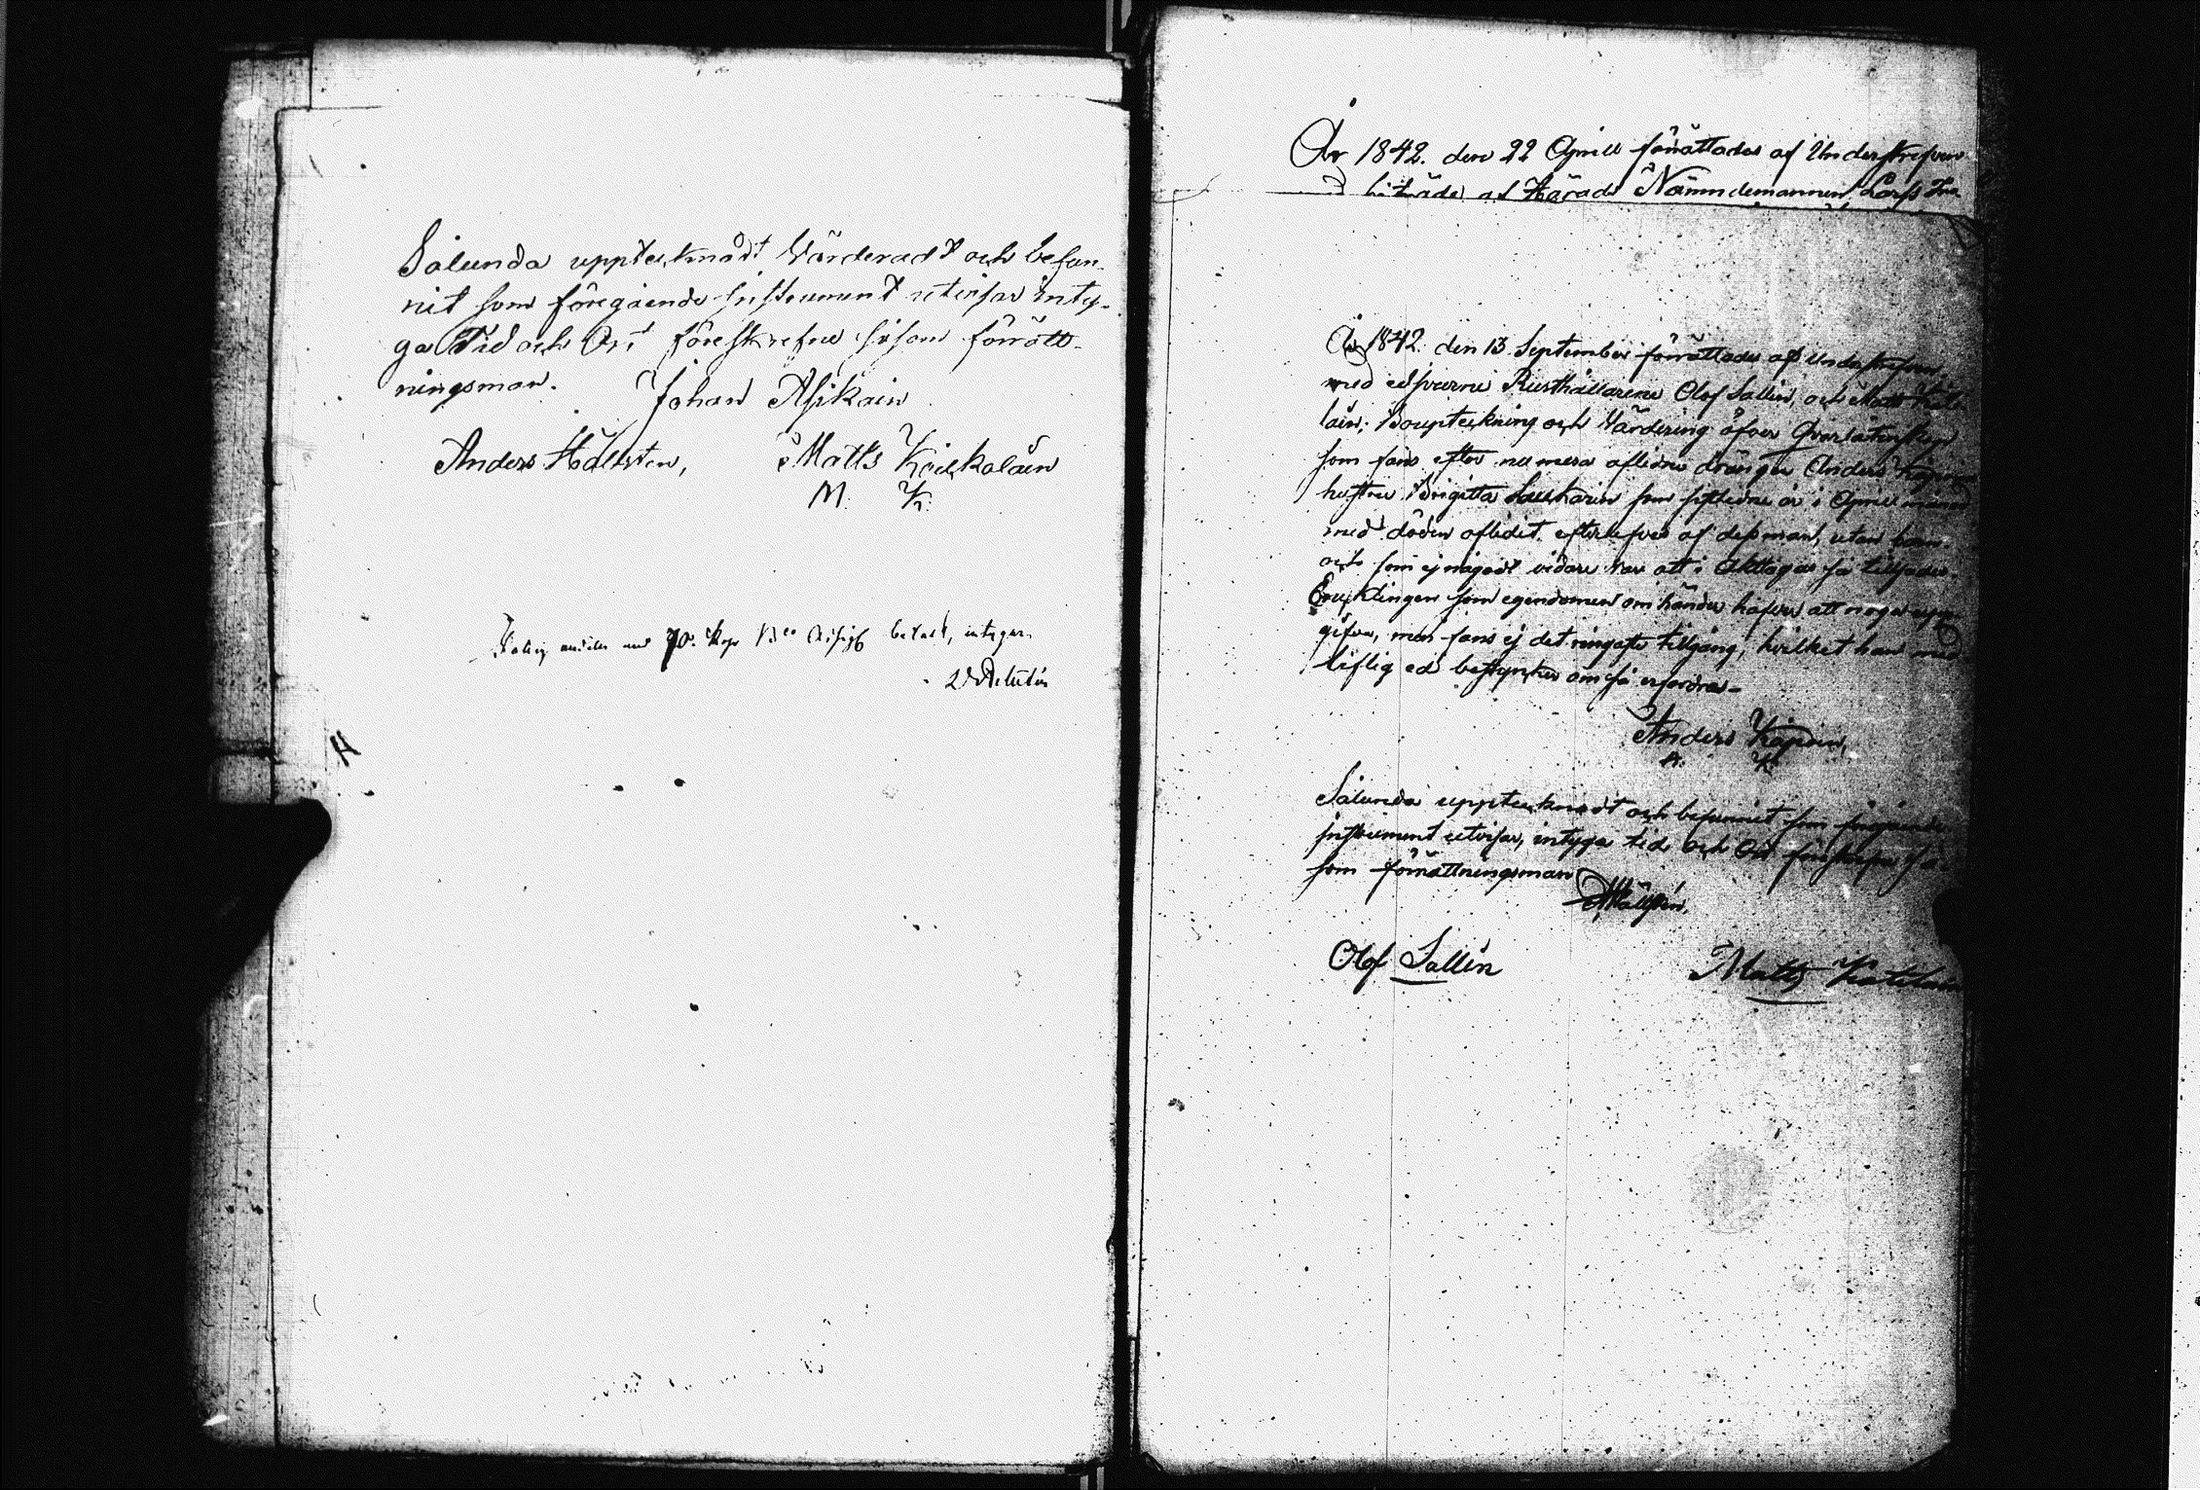 Sålunda uppteknadt Värderadt och befun-
nit som föregående Instrument utvisar inty-
ga Tid och Ort föreskrefne såsom förrätt-
ningsman. Johan Asikain
Anders Hällsten, Matts
M. K.
70. Kop betalt, intygar.
År 1842. den 22 Aprill förrättades af Underskrefven
biträde af Härads Nämndemannen Lars
År 1842. den 13 September förrättades af Underskrefven
med edsvurne Rusthållarene Olof Sallin, och Matts
lain; Bouptekning och Värdering öfver qvarlåtenskap
som fans efter numera aflidne drängen Anders
hustru Brigitta som sistledne år i Aprill månad
med döden aflidit. efterlefves af dess man, utan barn
och som ej något vidare var att i akttaga så tillsades
Enklingen som egendomen om händer hafver att noga upp
gifva, men fans ej det ringaste tillgång, hvilket han med
liflig ed bestyrker om så erfordras-
Anders
A. K.
Sålunda uppteknadt och befunnit som föregående
instrument utvisar, intyga tid och Ort föreskrefne så
som förrättningsman
Olof Sallin Matts